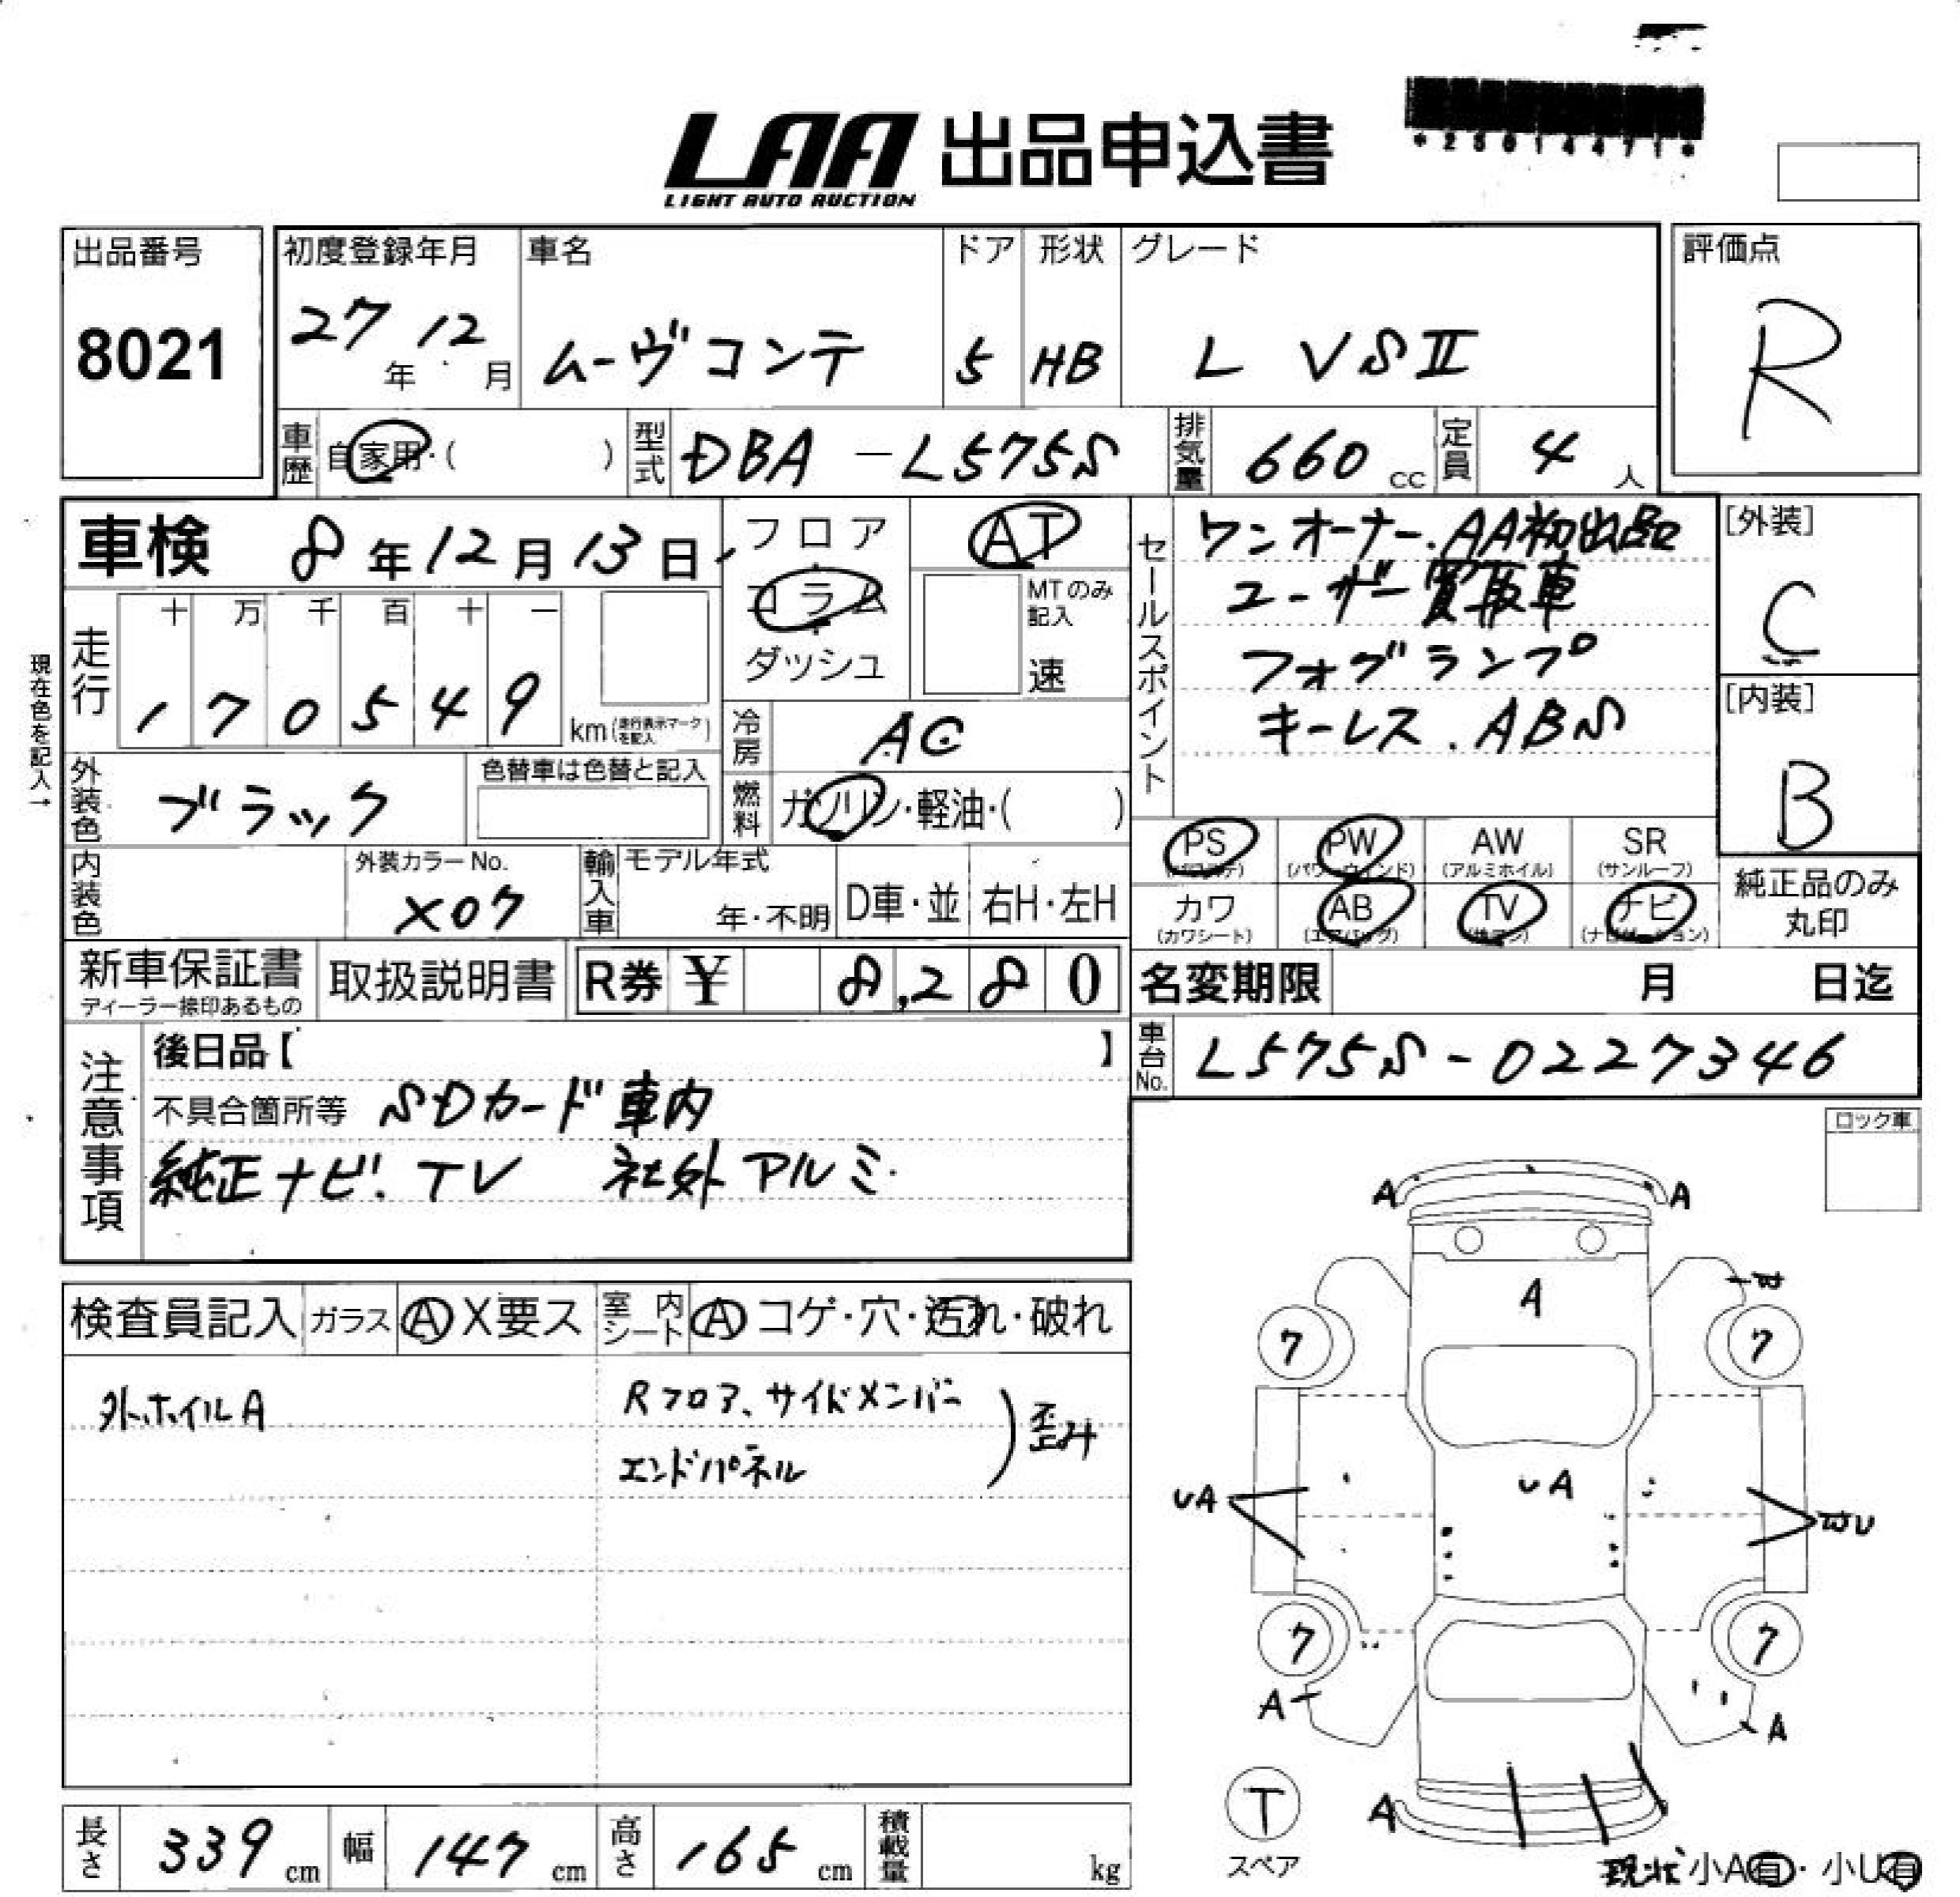 *25014471*
LAA 出品申込書
LIGHT AUTO AUCTION
出品番号
8021
初度登録年月
27年 12月
車名
ムーヴコンテ
ドア
5
形状
HB
グレード
L VSⅡ
評価点
R
車歴 自家用・( )
型式 DBA-L575S
排気量 660 cc
定員 4 人
車検 8年12月13日
フロア
コラム
ダッシュ
AT
MTのみ記入
速
セールスポイント
ワンオーナー.AA初出品
ユーザー買取車
フォグランプ
キーレス.ABS
[外装]
C
[内装]
B
現在色を記入→
走行
十 万 千 百 十 一
1 7 0 5 4 9
km (走行表示マークを記入)
冷房 AC
燃料 ガソリン・軽油・( )
外装色 ブラック
色替車は色替と記入
内装色
外装カラーNo.
X07
輸入車
モデル年式
年・不明
D車・並
右H・左H
PS (パワステ)
PW (パワーウインド)
AW (アルミホイル)
SR (サンルーフ)
カワ (カワシート)
AB (エアバッグ)
TV (地デジ)
ナビ (ナビゲーション)
純正品のみ
丸印
新車保証書
ディーラー捺印あるもの
取扱説明書
R券 ¥ 8,280
名変期限 月 日迄
車台No. L575S-0227346
注意事項
後日品【 】
不具合箇所等 SDカード車内
純正ナビ.TV 社外アルミ.
ロック車
検査員記入
ガラス Ⓐ X要ス
室内シート Ⓐ コゲ・穴・汚れ・破れ
外ホイルA
Rフロア、サイドメンバー
エンドパネル
歪み
A A
A
7 7
UA UA
7 7
A A
A
T
スペア
長さ 339 cm
幅 147 cm
高さ 165 cm
積載量 kg
現状 小A有・小U有